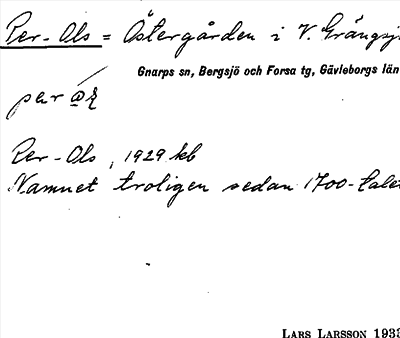 Per-Ols = Östergården i V. Grängsjö
Gnarps sn, Bergsjö och Forsa tg, Gävleborgs län
Per-Ols, 1929 kb
Namnet troligen sedan 1700-talet
LARS LARSSON 1933